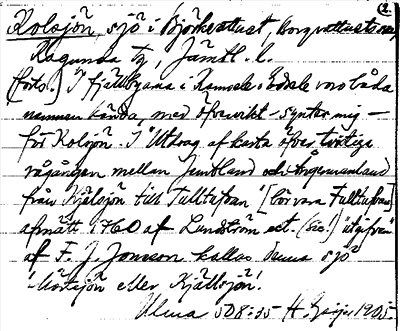 2.
Kolsjön, sjö i Björkvattnet, borgvattnets sn,
Ragunda tg, Jämtl. l.
(foto.) I fjällbyarna i Ramsele o Edsele voro båda
namnen kända, med öfvervikt - syntes mig -
för Kolsjön. I "Utdrag af karta öfver tvistiga
rågången mellan Jemtland och Ångermanland
från Kjälsjön till Tulltufvan" [bör vara Fulltufvan]
afmätt 1760 af Lundström et. (sic!) utgifven
af F. J. Jonsson kallas denna sjö
eller Kjättsjön!
Ulma 508:35 H. Geijer 1905